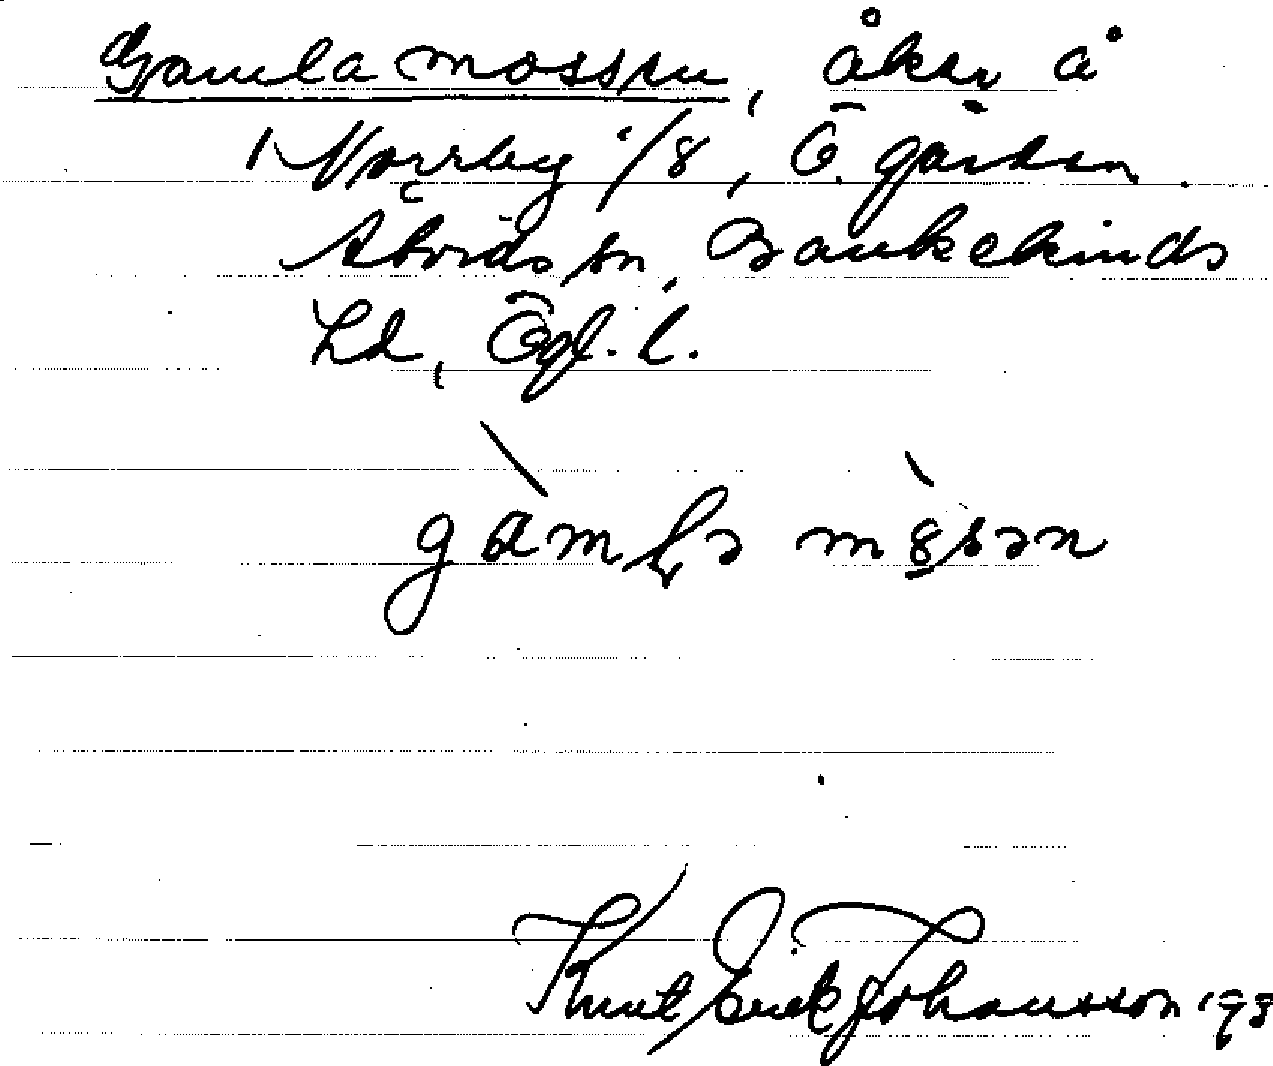 Gamla mossen, åker å
1 Norrby 1/8, Ö. gården
Åtvids sn, Bankekinds
hd, Ögl. l.
gàmḷə mòsən
Knut Erik Johansson 193